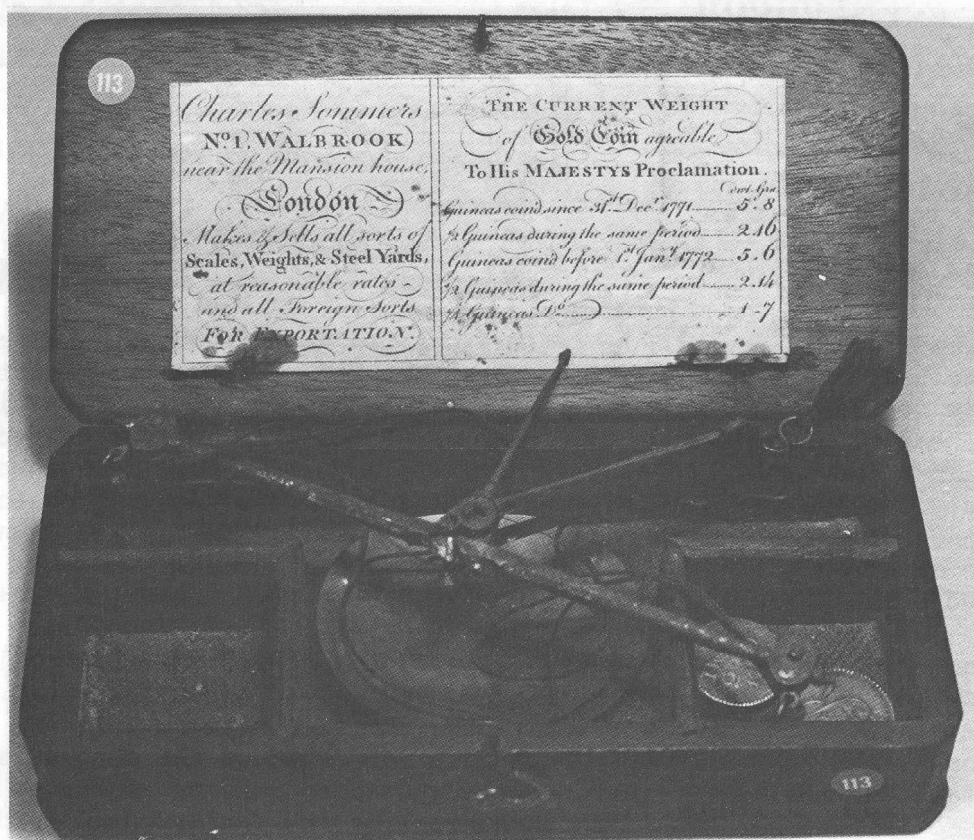 113
Charles Sommers
No. 1, WALBROOK
near the Mansion house,
London
Makes & Sells all sorts of
Scales, Weights, & Steel Yards,
at reasonable rates
and all Foreign Sorts
FOR EXPORTATION.
THE CURRENT WEIGHT
of Gold Coin agreable
To His MAJESTYS Proclamation.
Dwt. Grs
Guineas coind since 31st. Decr. 1771 5.8
½ Guineas during the same period 2.16
Guineas coind before 1st. Jany. 1772 5.6
½ Guineas during the same period 2.14
¼ Guineas Do. 1.7
113